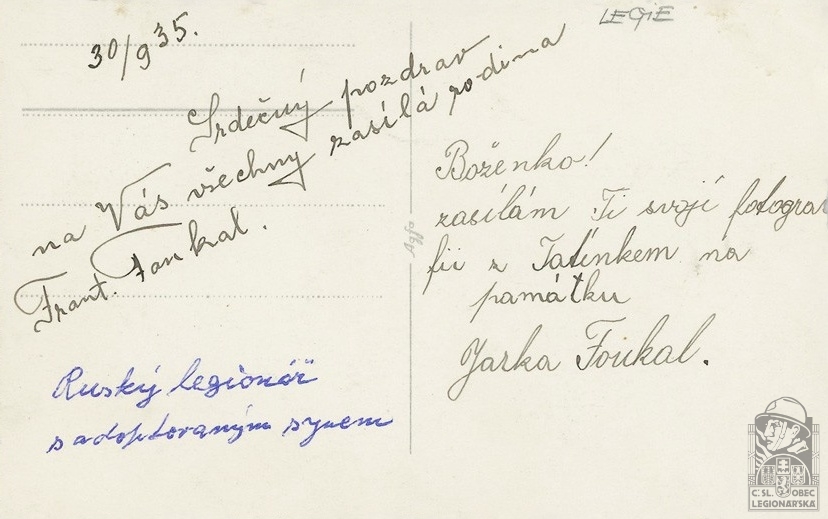 LEGIE
30/9 35.
Srdečný pozdrav
na Vás všechny zasílá rodina
Frant. Foukal.
Boženko!
zasílám Ti svojí fotogra
fii z Tatínkem na
památku
Jarka Foukal.
Agfa
Ruský legionář
s adoptovaným synem
Č.SL. OBEC
LEGIONÁŘSKÁ